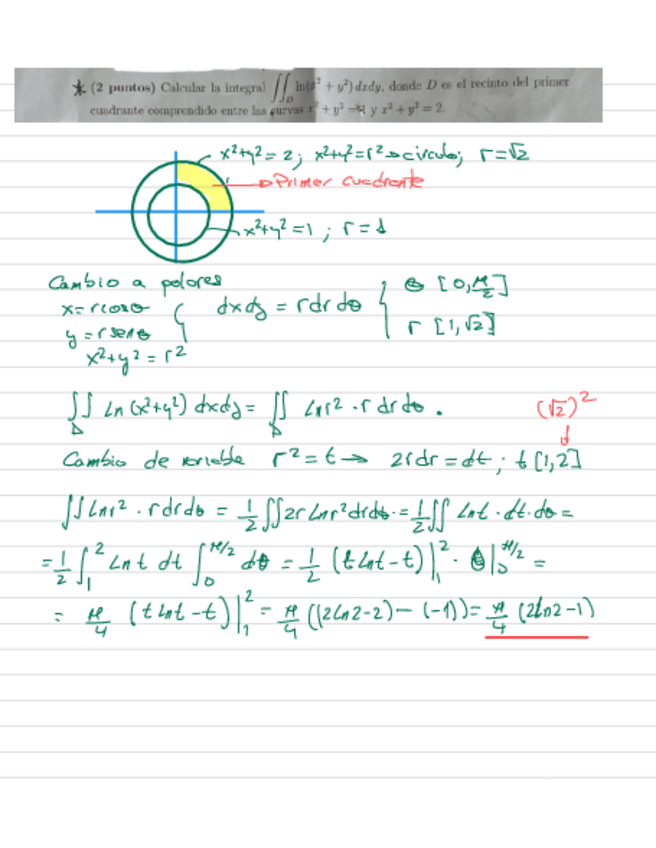 * (2 puntos) Calcular la integral ∬_D ln(x² + y²) dxdy, donde D es el recinto del primer
cuadrante comprendido entre las curvas x² + y² = 1 y x² + y² = 2.
x²+y² = 2; x²+y²=r² → círculo; r=√2
→ Primer cuadrante
x²+y²=1 ; r=1
Cambio a polares
x=rcosθ
y=rsenθ
x²+y²=r²
dxdy = rdrdθ
θ [0,π/2]
r [1,√2]
∬_D Ln(x²+y²) dxdy = ∬_D Lnr² · r dr dθ .
(√2)²
↓
Cambio de variable r²=t → 2rdr=dt; t [1,2]
∬Lnr² · rdrdθ = 1/2 ∬2r Lnr²drdθ = 1/2 ∬ Lnt · dt · dθ =
= 1/2 ∫₁² Lnt dt ∫₀^π/2 dθ = 1/2 (tLnt-t)|₁² · θ|₀^π/2 =
= π/4 (tLnt-t)|₁² = π/4 ((2Ln2-2)-(-1)) = π/4 (2Ln2-1)